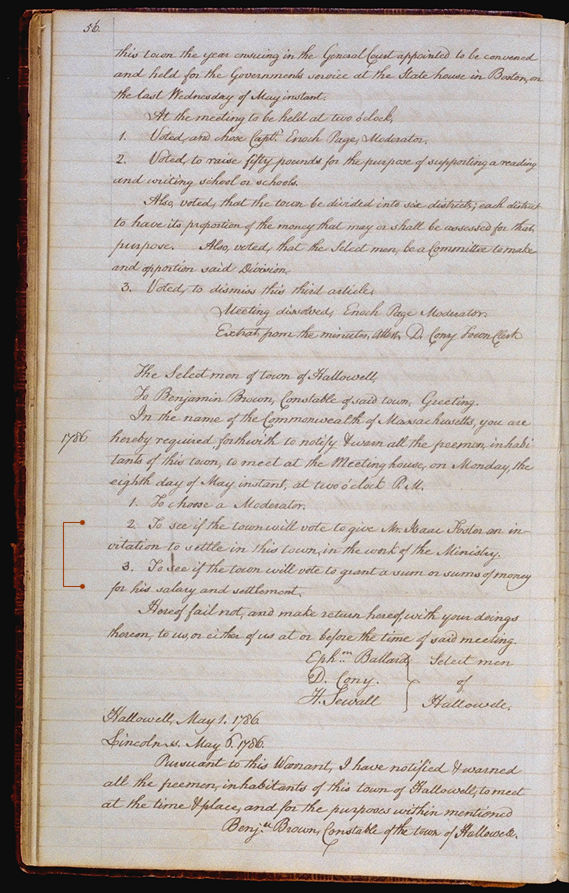 56.
this town the year ensuing in the General Court appointed to be convened
and held for the Governments service at the State house in Boston, on
the last Wednesday of May instant.
At the meeting to be held at two o'clock,
1. Voted, and chose Capt. Enoch Page, Moderator.
2. Voted, to raise fifty pounds for the purpose of supporting a reading
and writing school or schools.
Also, voted, that the town be divided into six districts; each district
to have its proportion of the money that may or shall be assessed for that
purpose. Also, voted, that the Select men, be a Committee to make
and opportion said Division.
3. Voted, to dismiss this third article.
Meeting dissolved, Enoch Page Moderator.
Extract from the minutes, Attest, D. Cony Town Clerk
The Select men of town of Hallowell,
To Benjamin Brown, Constable of said town, Greeting.
In the name of the Commonwealth of Massachusetts, you are
1786 hereby required, forthwith to notify & warn all the freemen, inhabi
tants of this town, to meet at the Meeting house, on Monday, the
eighth day of May instant, at two o'clock P.M.
1. To choose a Moderator.
2. To see if the town will vote to give Mr. Isaac Foster an in-
vitation to settle in this town, in the work of the Ministry.
3. To see if the town will vote to grant a sum or sums of money
for his salary and settlement.
Hereof fail not, and make return hereof, with your doings
thereon, to us, or either of us at or before the time of said meeting.
Ephm Ballard Select men
D. Cony. of
H. Sewall Hallowell.
Hallowell, May 1. 1786.
Lincoln ss. May 6. 1786.
Pursuant to this Warrant, I have notified & warned
all the freemen, inhabitants of this town of Hallowell, to meet
at the time & place, and for the purposes within mentioned
Benj.n Brown, Constable of the town of Hallowell.